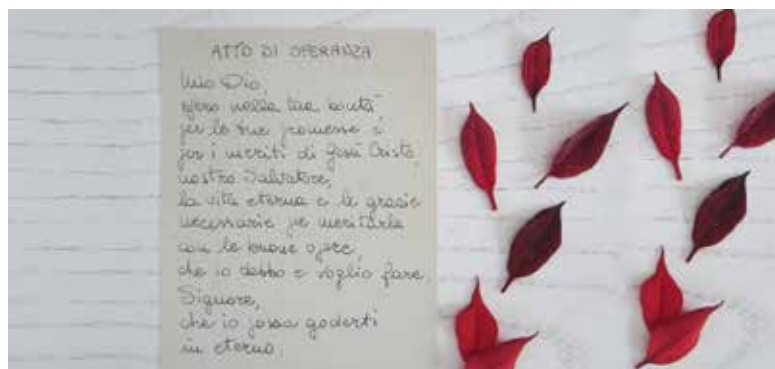 ATTO DI SPERANZA
Mio Dio,
spero nella tua bontà,
per le tue promesse e
per i meriti di Gesù Cristo,
nostro Salvatore,
la vita eterna e le grazie
necessarie per meritarla
con le buone opere,
che io debbo e voglio fare.
Signore,
che io possa goderti
in eterno.